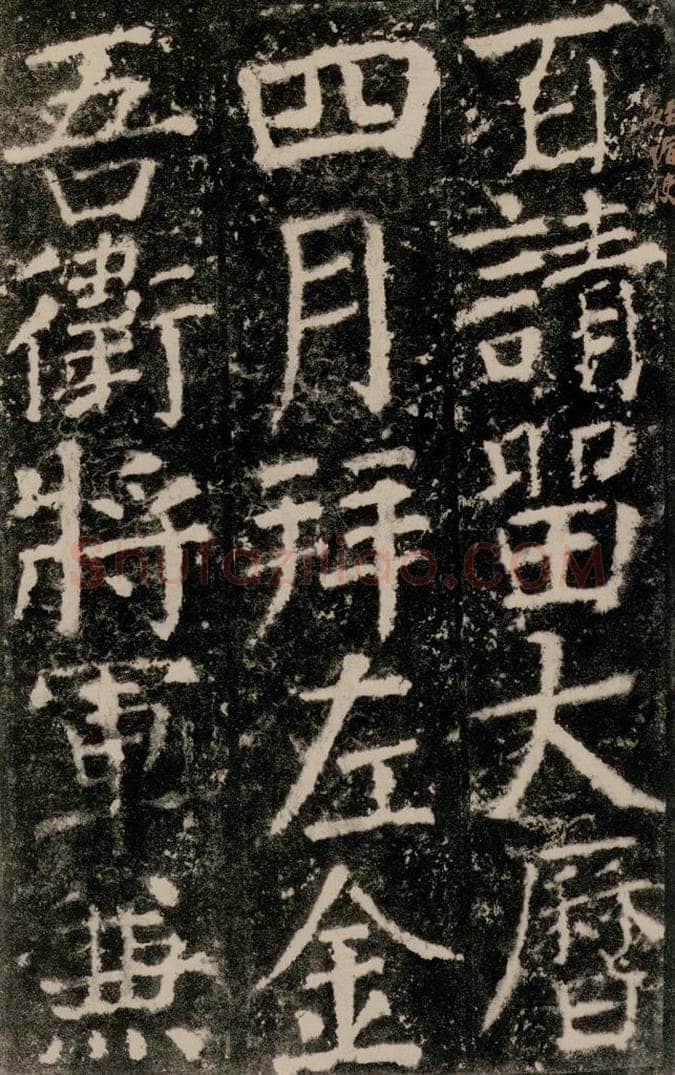 百請留大曆
四月拜左金
吾衛將軍兼
Shufaziliao.COM